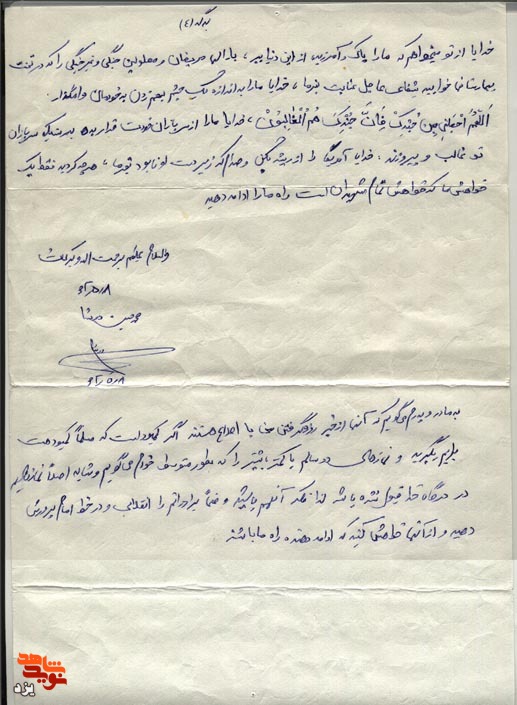 برگه (٤)
خدایا از تو میخواهم که ما را پاک و آمرزیده از این دنیا ببر، بارالها مریضان و معلولین جنگی و غیر جنگی را که در تخت
بیمارستانها خوابیده شفای عاجل عنایت بفرما، خدایا ما را به اندازه یک چشم بهم زدن به خودمان وامگذار
اَللّهُمَّ اجْعَلْنی مِنْ جُنْدِکَ فَاِنَّ جُنْدَکَ هُمُ الْغالِبُونَ، خدایا ما را از سربازان خودت قرار بده بدرستیکه سربازان
تو غالب و پیروزند، خدایا آمریکا را از ریشه بکن و صدام که زیر دست او نابود بفرما، هر چه کردید فقط یک
خواهش ما که خواهش تمام شهیدان است راه ما را ادامه دهید
والسلام علیکم و رحمت اله و برکاته
به مادر و پدرم میگویم که آنها از خیر روزه گرفتن بجا یا اصلاح هستند اگر کمبود است که مسلماً کمبود هست
برایم بگیرید و نمازهای دو سالم یا کمتر یا بیشتر را که بطور متوسط خودم می گویم و شاید اصلاً نمازهایم
در درگاه خدا قبول نشده باشد لذا بفکر آنهم باشید و ضمناً برادرانم را انقلابی و در خط امام پرورش
دهید و از آنها خواهش کنید که ادامه دهنده راه ما باشند
شاهد
نوید
یزد